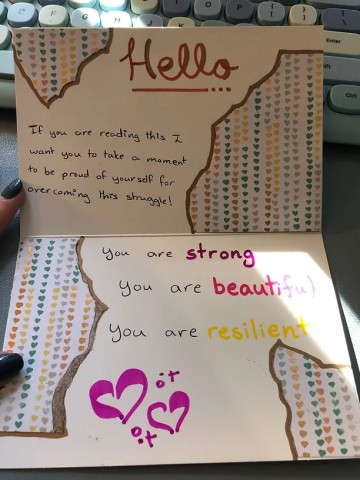 Hello
If you are reading this I
want you to take a moment
to be proud of yourself for
overcoming this struggle!
You are strong
You are beautiful
You are resilient
Enter
Ctrl